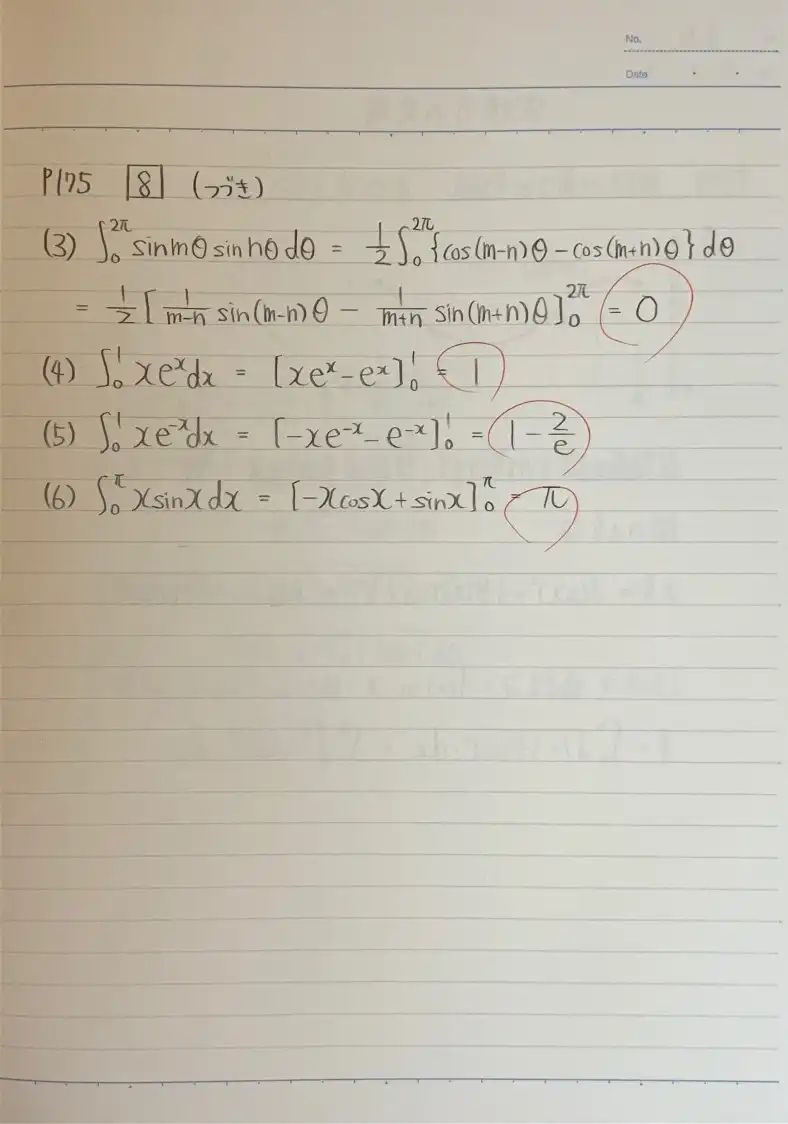 No.
Date
P175 8 (つづき)
(3) ∫₀^2π sinmθ sinnθ dθ = 1/2 ∫₀^2π {cos(m-n)θ - cos(m+n)θ} dθ
= 1/2 [ 1/(m-n) sin(m-n)θ - 1/(m+n) sin(m+n)θ ]₀^2π = 0
(4) ∫₀^1 xe^x dx = [xe^x - e^x]₀^1 = 1
(5) ∫₀^1 xe^-x dx = [-xe^-x - e^-x]₀^1 = 1 - 2/e
(6) ∫₀^π x sinx dx = [-x cosx + sinx]₀^π = π